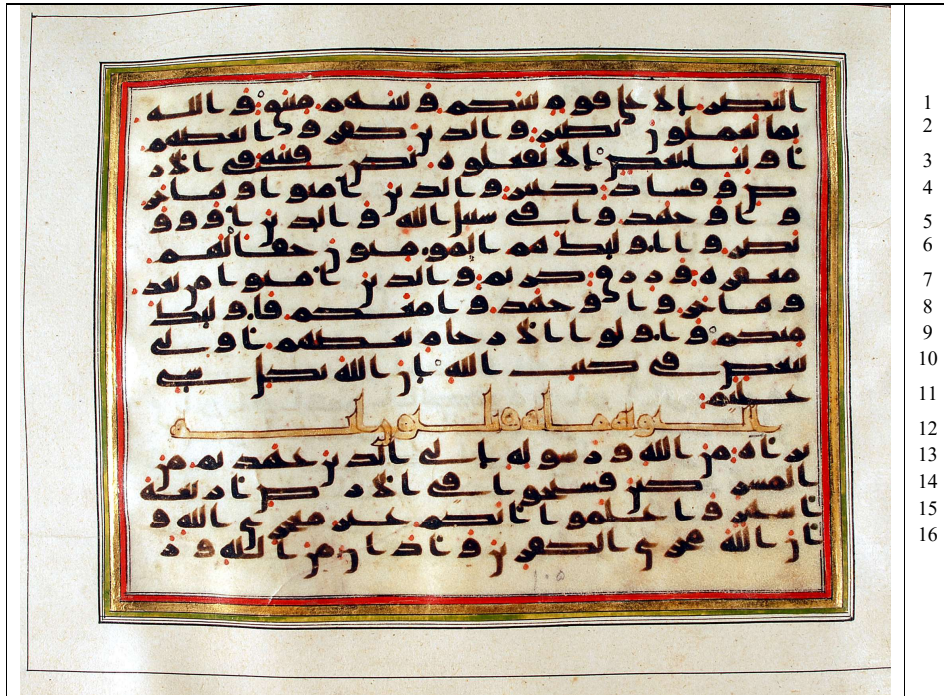 1 النصر الا على قوم بينكم وبينهم ميثق والله
2 بما تعملون بصير والذين كفروا بعضهم
3 اوليا بعض الا تفعلوه تكن فتنة في الار
4 ض وفساد كبير والذين امنوا وهاجر
5 وا وجهدوا في سبيل الله والذين اووا و
6 نصروا اوليك هم المومنون حقا لهم
7 مغفرة ورزق كريم والذين امنوا من بعد
8 وهاجروا وجهدوا معكم فاوليك
9 منكم واولوا الارحام بعضهم اولى
10 ببعض في كتب الله ان الله بكل شي
11 عليم
12 التوبة مائة وثلثون اية
13 براة من الله ورسوله الى الذين عهدتم من
14 المشركين فسيحوا في الارض اربعة
15 اشهر واعلموا انكم غير معجزي الله و
16 ان الله مخزي الكفرين واذان من الله ور
١٠٥